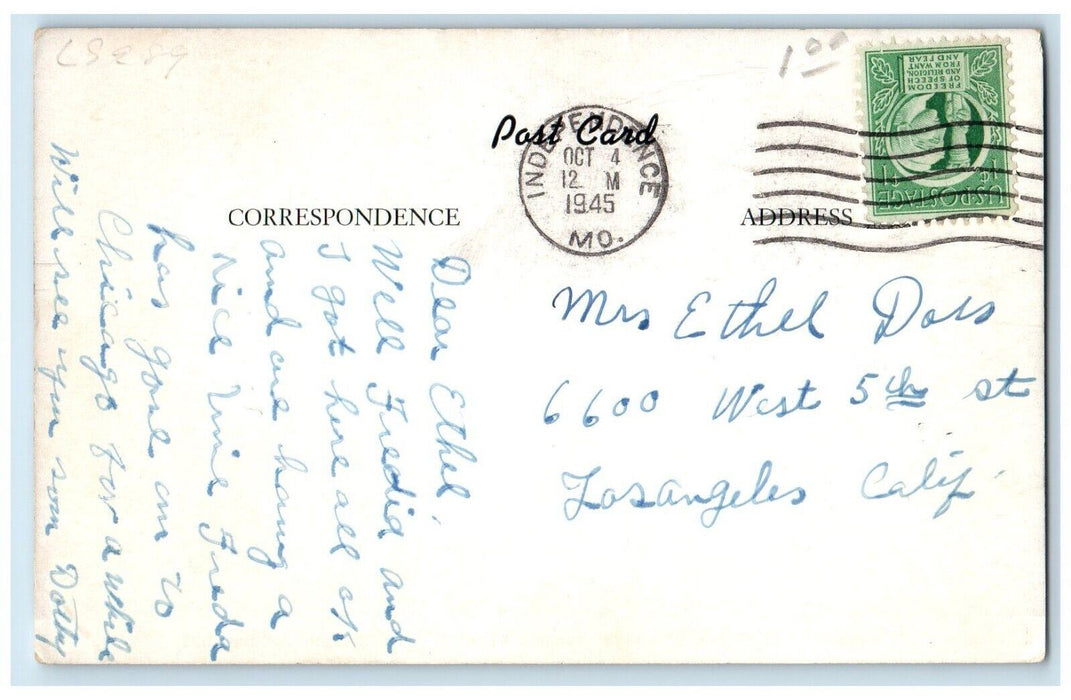 LS289
1 00
Post Card
INDEPENDENCE
OCT 4
12 M
1945
MO.
FREEDOM
OF SPEECH
AND RELIGION,
FROM WANT
AND FEAR
1¢ 1¢
U.S. POSTAGE
CORRESPONDENCE
ADDRESS
Dear Ethel,
Well Freda and
I got here all ok
and are having a
nice time Freda
has gone on to
Chicago for a while
Will see you soon Dotty
Mrs Ethel
6600 West 5th st
Losangeles Calif.